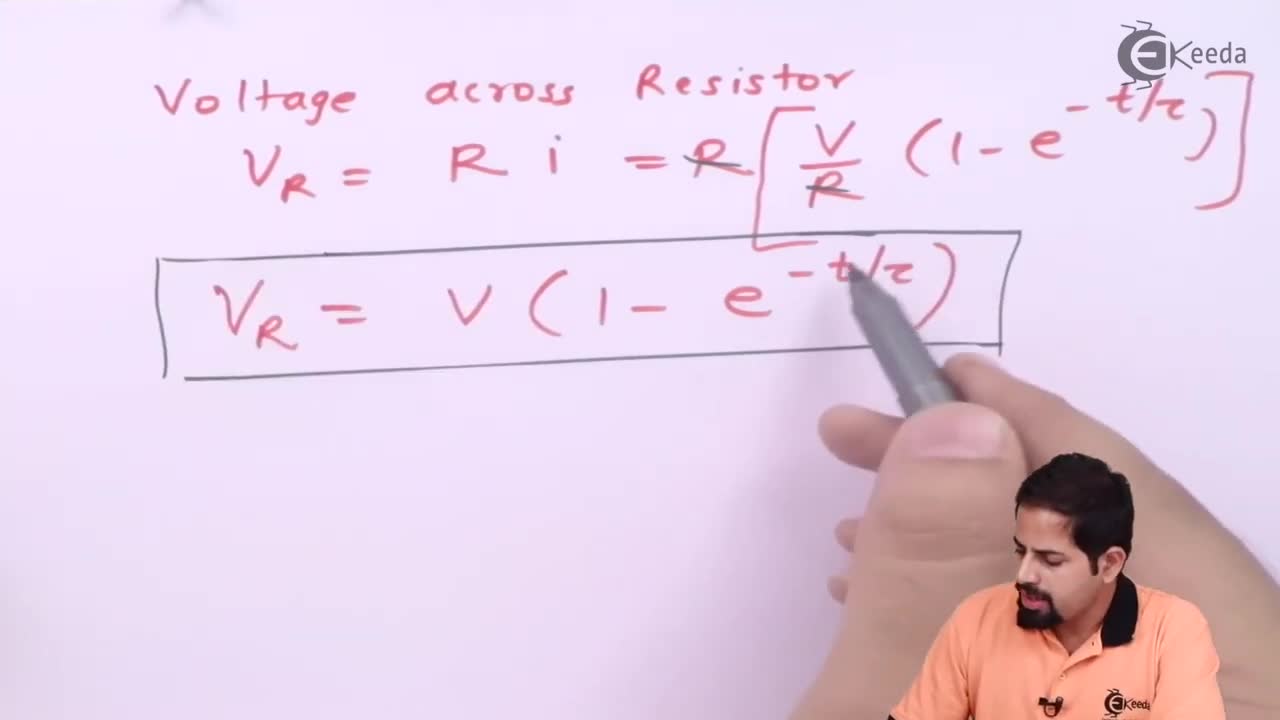 EKeeda
Voltage across Resistor
V_R = R i = R [ V/R (1 - e^{-t/τ}) ]
V_R = V ( 1 - e^{-t/τ} )
EKeeda